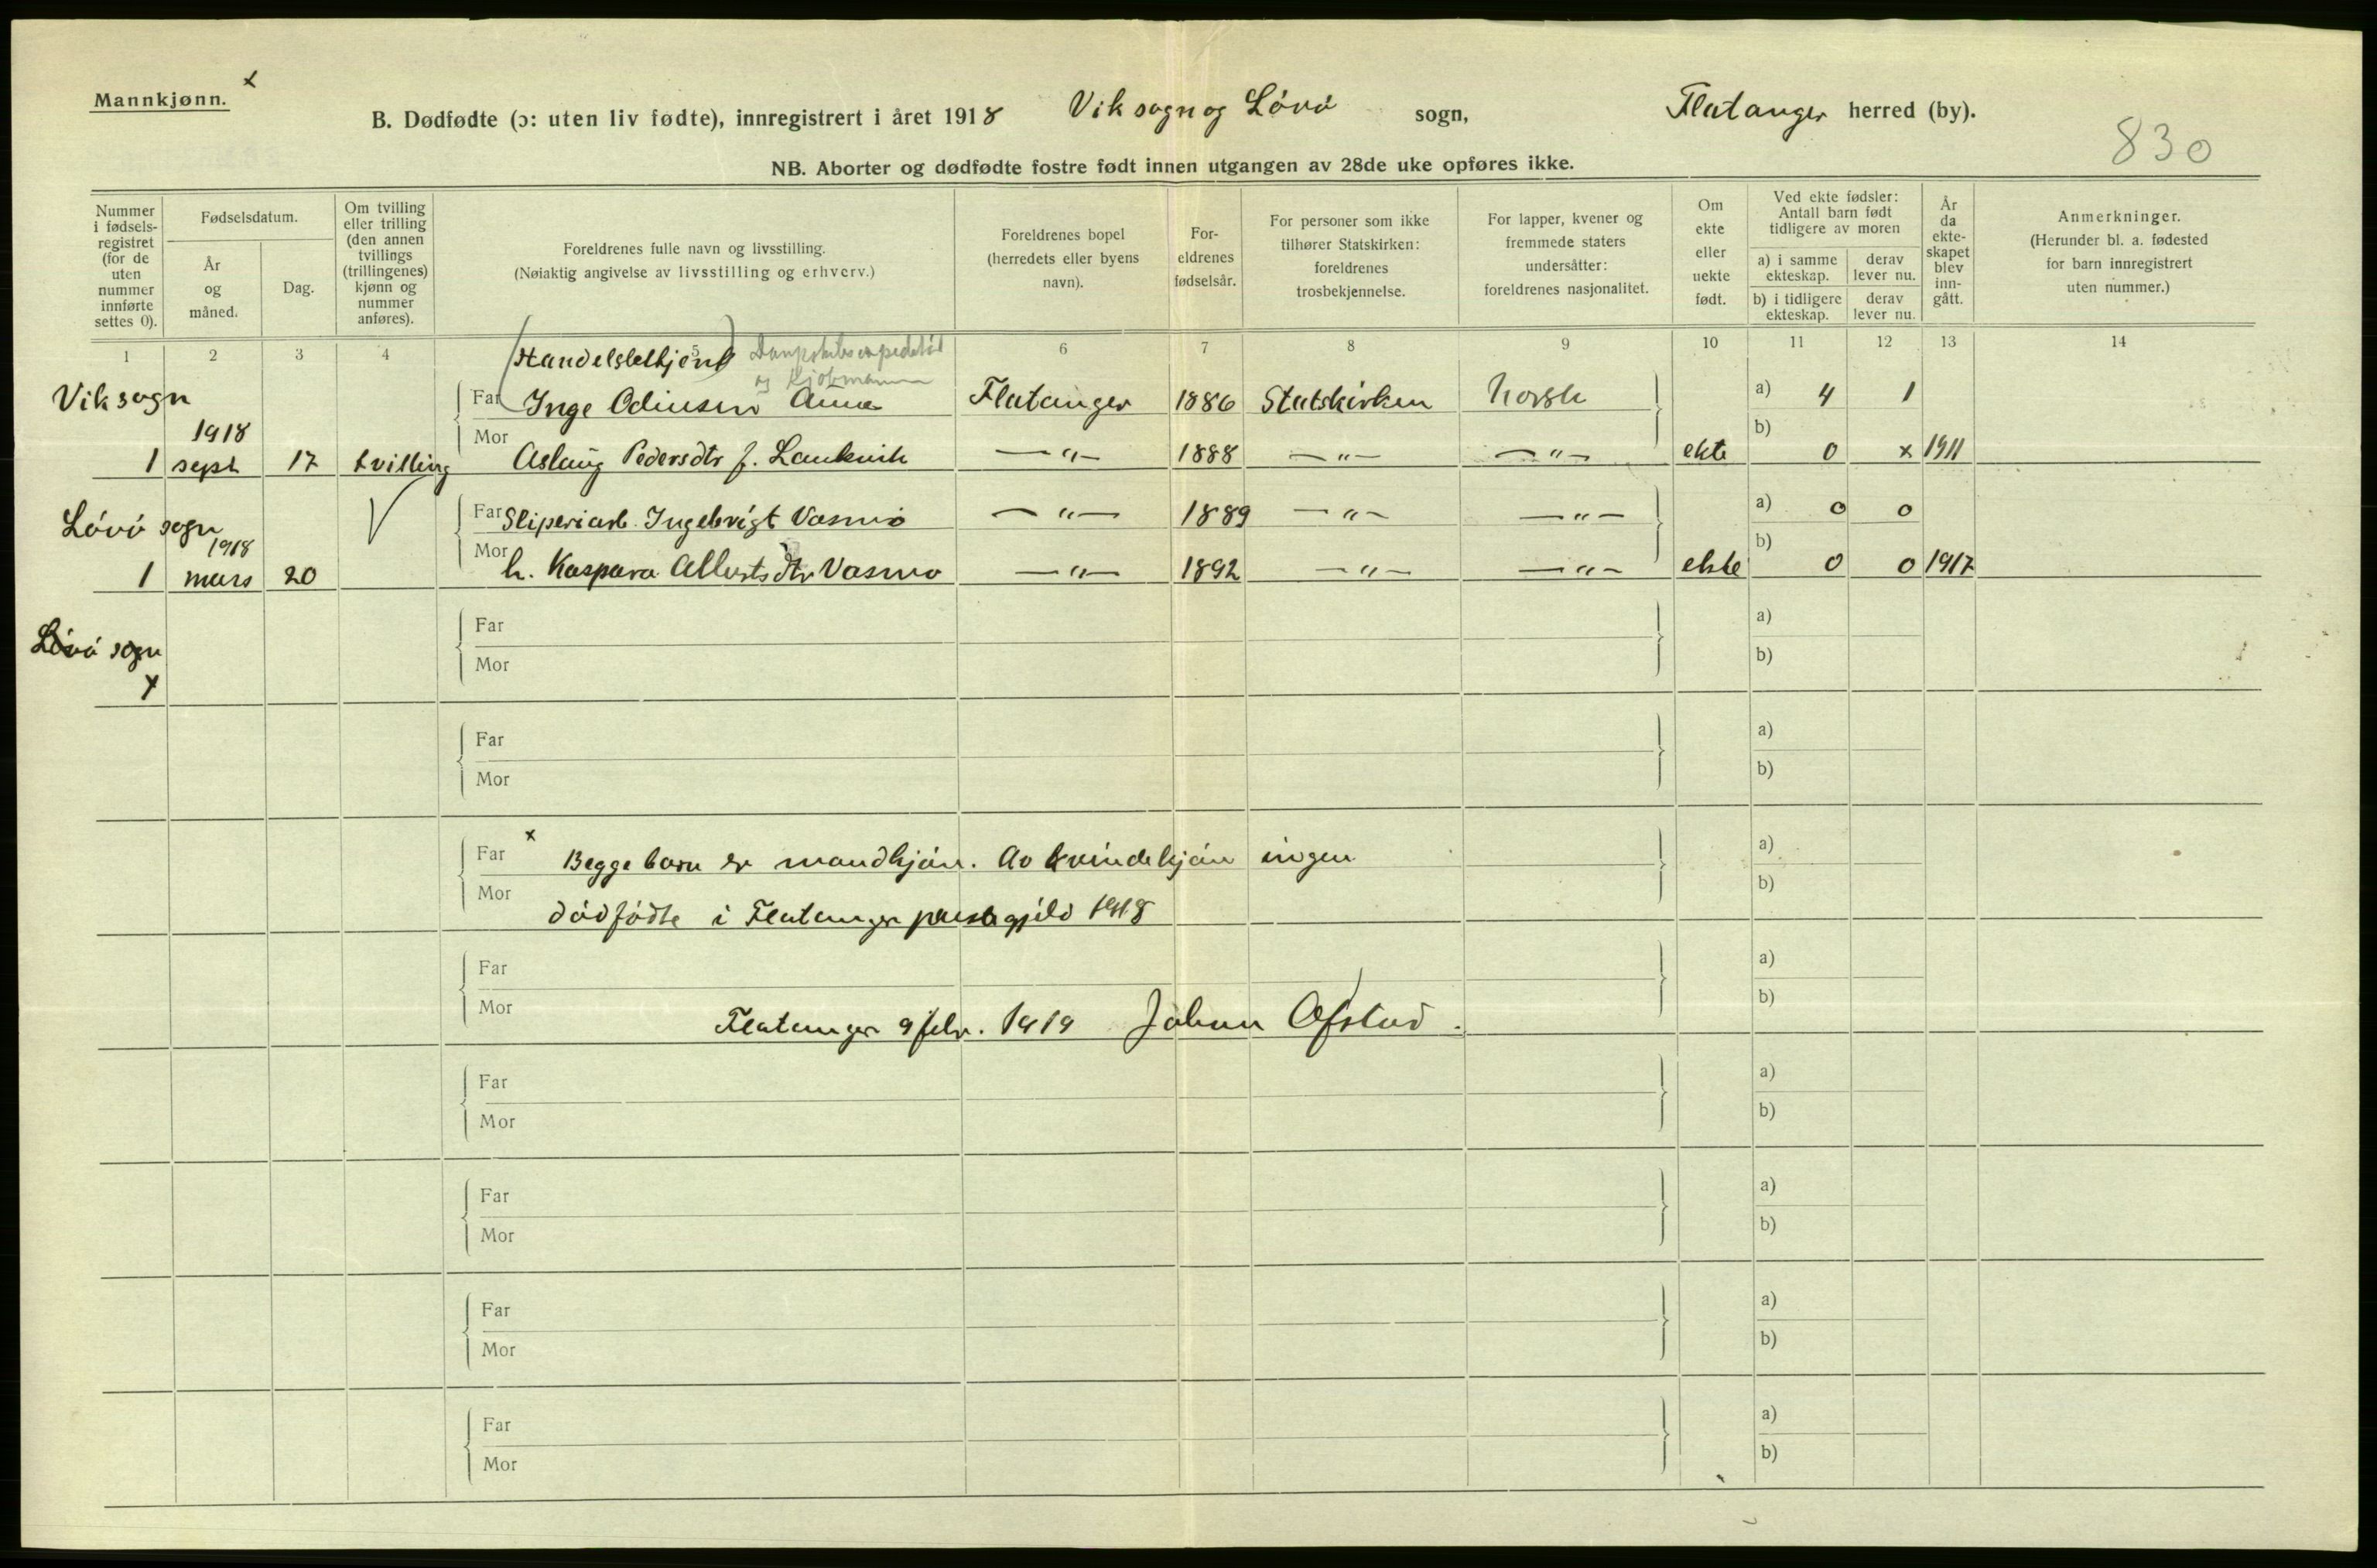 Mannkjønn. x
B. Dødfødte (ɔ: uten liv fødte), innregistrert i året 1918 Vik sogn og Løvö sogn, Flatanger herred (by).
830
NB. Aborter og dødfødte fostre født innen utgangen av 28de uke opføres ikke.
Nummer i fødsels-registret (for de uten nummer innførte settes 0).
Fødselsdatum.
År og måned.
Dag.
Om tvilling eller trilling (den annen tvillings (trillingenes) kjønn og nummer anføres).
Foreldrenes fulle navn og livsstilling.
(Nøiaktig angivelse av livsstilling og erhverv.)
Foreldrenes bopel (herredets eller byens navn).
For-eldrenes fødselsår.
For personer som ikke tilhører Statskirken: foreldrenes trosbekjennelse.
For lapper, kvener og fremmede staters undersåtter: foreldrenes nasjonalitet.
Om ekte eller uekte født.
Ved ekte fødsler: Antall barn født tidligere av moren
a) i samme ekteskap. derav lever nu.
b) i tidligere ekteskap. derav lever nu.
År da ekte-skapet blev inn-gått.
Anmerkninger.
(Herunder bl. a. fødested for barn innregistrert uten nummer.)
1 2 3 4 5 6 7 8 9 10 11 12 13 14
(Handelsbetjent) Dampskibsexpeditör
og kjöbmann
Vik sogn
Far Inge Odinsen Flatanger 1886 Statskirken norsk a) 4 1
1918
Mor b)
1 sept 17 tvilling Aslaug Pedersdtr f. Lauknik —"— 1888 —"— —"— ekte 0 x 1911
Lövö sogn
Far Sliperiarb. Ingebrigt Vasmo —"— 1889 —"— —"— a) 0 0
1918
Mor b)
1 mars 20 h. Kaspara Albertsdtr Vasmo —"— 1892 —"— —"— ekte 0 0 1917
Far a)
Lövö sogn
Mor b)
x
Far a)
Mor b)
Far x Begge barn er mandkjön. Av kvindekjön ingen a)
Mor dödfödte i Flatanger prestegjeld 1918 b)
Far a)
Mor Flatanger 9 febr. 1919 Johan Ofstad. b)
Far a)
Mor b)
Far a)
Mor b)
Far a)
Mor b)
Far a)
Mor b)